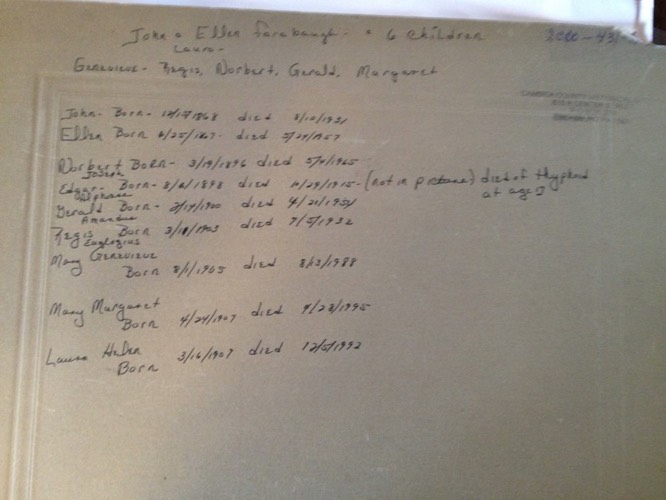 John & Ellen Farabaugh - & 6 children 2000-431
Laura-
Genevieve - Regis, Norbert, Gerald, Margaret
CAMBRIA COUNTY
John - Born - 1868 died
Ellen Born 6/25/1867 - died 5/24/1957
Norbert Born - 3/19/1896 died 5/9/1965
Joseph
Edgar - Born - 8/6/1898 died 10/29/1915 - (not in picture) died of thyphoid
Alphonse at age
Gerald Born - 2/14/1900 died 4/21/1951
Amandus
Regis Born 3/10/1903 died 7/5/1932
Eulogius
Mary Genevieve
Born 8/1/1905 died 8/13/1988
Mary Margaret
Born 4/24/1907 died 9/23/1995
Laura Helen
Born 3/16/1907 died 12/5/1992